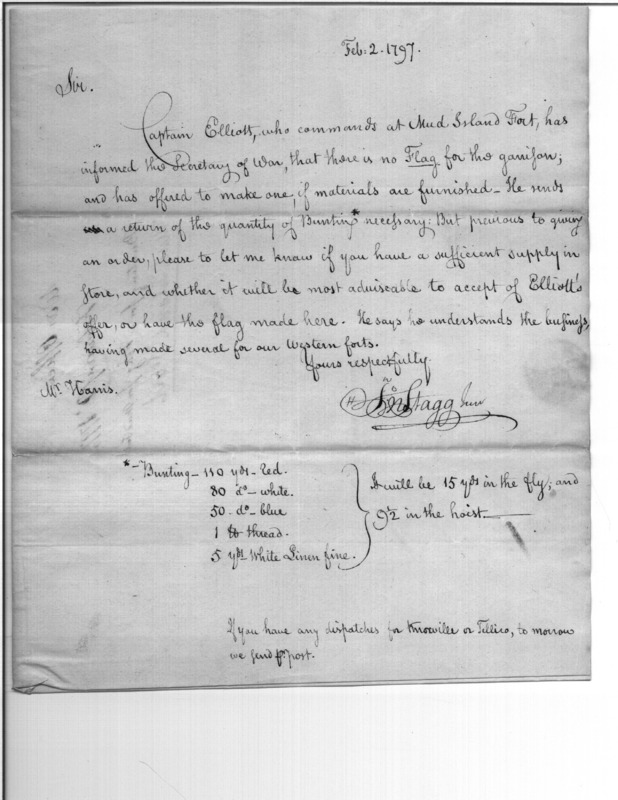 Feb: 2. 1797.
Sir.
Captain Elliott, who commands at Mud Island Fort, has
informed the Secretary of War, that there is no Flag for the garrison;
and has offered to make one, if materials are furnished - He sends
a return of the quantity of Bunting* necessary: But previous to giving
an order, please to let me know if you have a sufficient supply in
store, and whether it will be most adviseable to accept of Elliott's
offer, or have the flag made here. He says he understands the business,
having made several for our Western forts.
Yours respectfully.
Jno Stagg Junr
Mr. Harris.
*- Bunting - 110 yds - Red.
80 do - white.
50 - do - blue
1 lb thread.
5 yds White Linen fine.
It will be 15 yds in the fly; and
9½ in the hoist.
If you have any dispatches for Knoxville or Tellico, to morrow
we send pr. post.